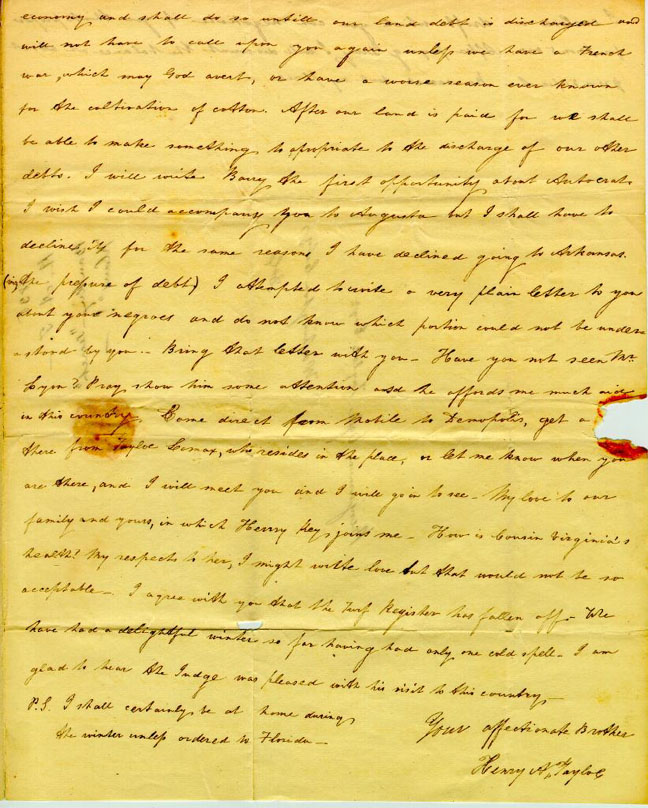 economy and shall do so untill our land debt is discharged and
will not have to call upon you again unless we have a French
war, which may God avert, or have a worse season ever known
for the cultivation of cotton. After our land is paid for we shall
be able to make something to apropriate to the discharge of our other
debts. I will write Barry the first opportunity about Autocrat.
I wish I could accompany you to Augusta but I shall have to
decline, it for the same reasons I have declined going to Arkansas.
(viz the pressure of debt) I attempted to write a very plain letter to you
about your negroes and do not know which portion could not be under-
stood by you.– Bring that letter with you– Have you not seen Mr.
Lyon? Pray show him some attention and he affords me much aid
in this country. Come direct from Mobile to Demopolis, get a
there from Tayloe Lomax, who resides in the place, or let me know when you
are there, and I will meet you and I will go in to see– My love to our
family and yours, in which Henry Key joins me– How is Cousin Virginia's
health? My respects to her, I might write love but that would not be so
acceptable– I agree with you that the Turf Register has fallen off– We
have had a delightful winter so far having had only one cold spell– I am
glad to hear the Judge was pleased with his visit to this country–
P.S. I shall certainly be at home during
the winter unless ordered to Florida–
Your affectionate Brother
Henry A. Tayloe